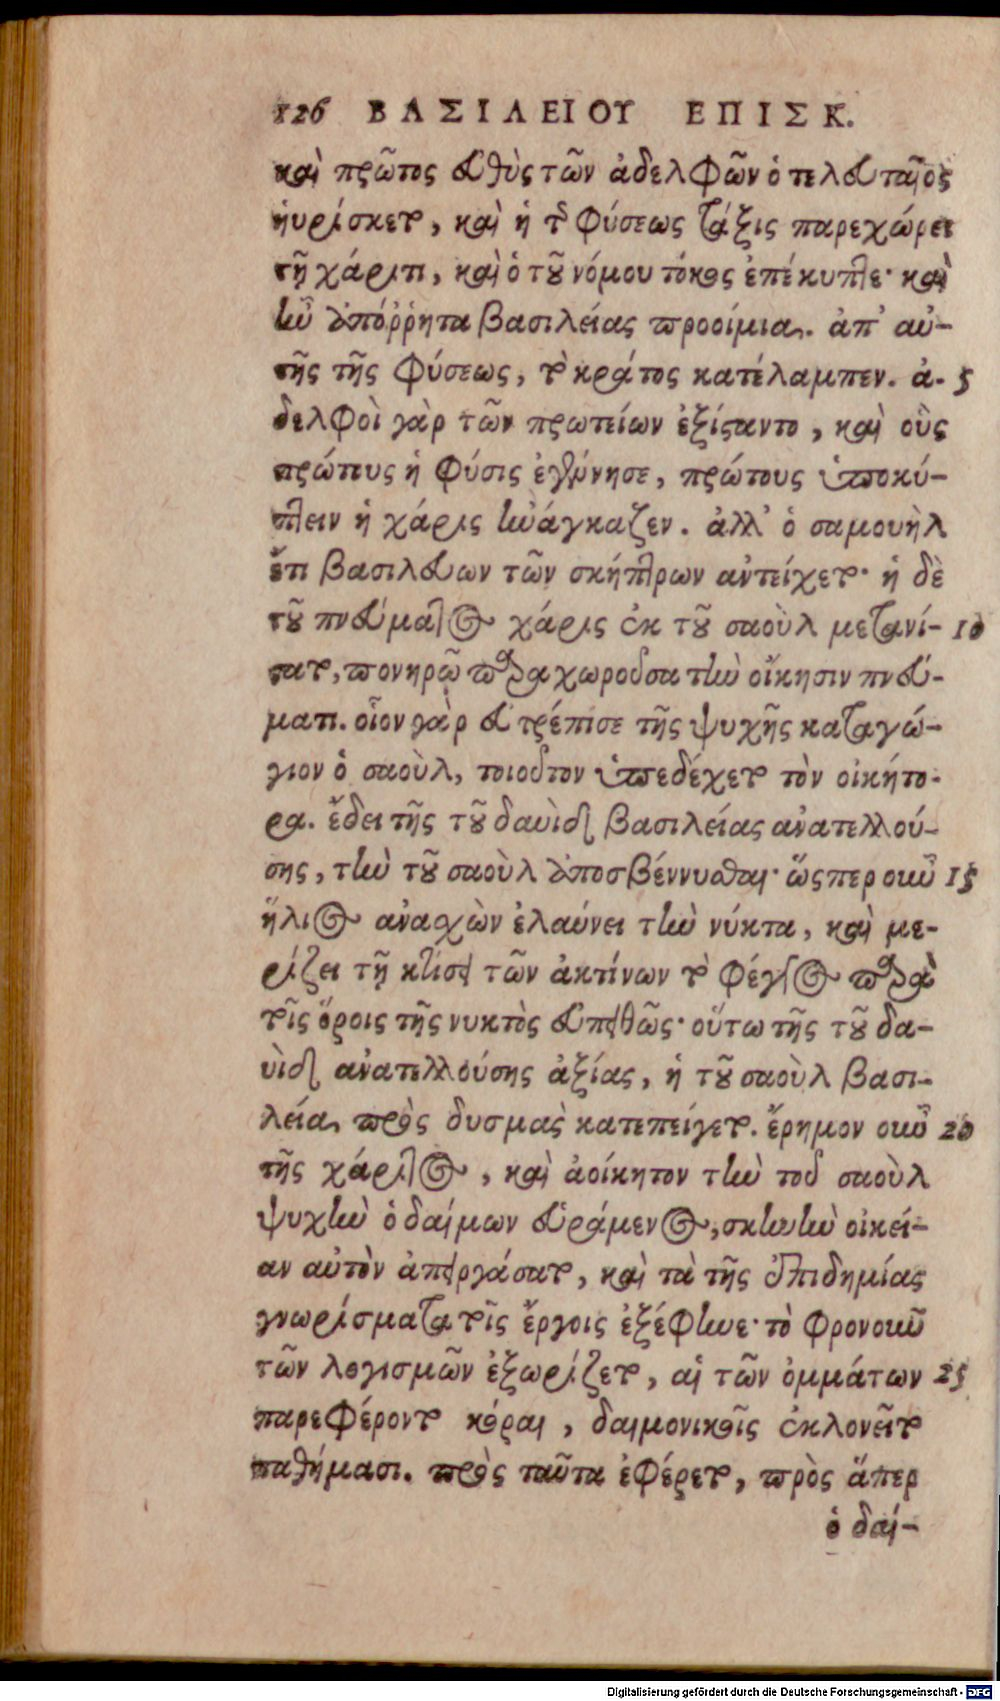 126 ΒΑΣΙΛΕΙΟΥ ΕΠΙΣΚ.
καὶ πρῶτος εὐθὺς τῶν ἀδελφῶν ὁ τελευταῖος
ηὑρίσκετο, καὶ ἡ τῆς φύσεως τάξις παρεχώρει
τῇ χάριτι, καὶ ὁ τοῦ νόμου τόκος ἐπέκυπτε· καὶ
ἦν ἀπόῤῥητα βασιλείας προοίμια. ἀπ' αὐ-
τῆς τῆς φύσεως, τὸ κράτος κατέλαμπεν. ἀ- 5
δελφοὶ γὰρ τῶν πρωτείων ἐξίσταντο, καὶ οὓς
πρώτους ἡ φύσις ἐγέννησε, πρώτους ὑποκύ-
πτειν ἡ χάρις ἠνάγκαζεν. ἀλλ' ὁ σαμουὴλ
ἔτι βασιλεύων τῶν σκήπτρων ἀντείχετο· ἡ δὲ
τοῦ πνεύματος χάρις ἐκ τοῦ σαοὺλ μετανί- 10
σταται, πονηρῷ παραχωροῦσα τὴν οἴκησιν πνεύ-
ματι. οἷον γὰρ εὐτρέπισε τῆς ψυχῆς καταγώ-
γιον ὁ σαοὺλ, τοιοῦτον ὑπεδέχετο τὸν οἰκήτο-
ρα. ἔδει τῆς τοῦ δαυὶδ βασιλείας ἀνατελλού-
σης, τὴν τοῦ σαοὺλ ἀποσβέννυσθαι· ὥσπερ οὖν 15
ἥλιος ἀνασχὼν ἐλαύνει τὴν νύκτα, καὶ με-
ρίζει τῇ κτίσει τῶν ἀκτίνων τὸ φέγγος παρὰ
τοῖς ὅροις τῆς νυκτὸς εὐπειθῶς· οὕτω τῆς τοῦ δα-
υὶδ ἀνατελλούσης ἀξίας, ἡ τοῦ σαοὺλ βασι-
λεία πρὸς δυσμὰς κατεπείγετο. ἔρημον οὖν 20
τῆς χάριτος, καὶ ἀοίκητον τὴν τοῦ σαοὺλ
ψυχὴν ὁ δαίμων εὑράμενος, σκηνὴν οἰκεί-
αν αὐτὸν ἀπειργάσατο, καὶ τὰ τῆς ἐπιδημίας
γνωρίσματα τοῖς ἔργοις ἐξέφηνε· τὸ φρονοῦν
τῶν λογισμῶν ἐξωρίζετο, αἱ τῶν ὀμμάτων 25
παρεφέροντο κόραι, δαιμονικοῖς ἐκλονεῖτο
παθήμασι. πρὸς ταῦτα ἐφέρετο, πρὸς ἅπερ
ὁ δαί-
Digitalisierung gefördert durch die Deutsche Forschungsgemeinschaft - DFG